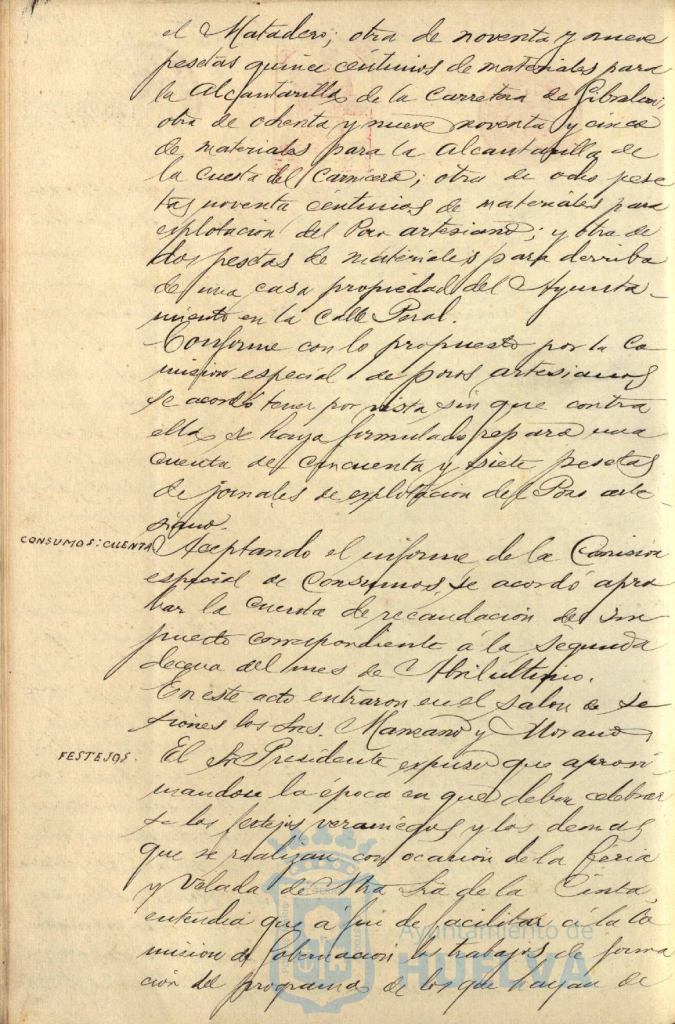 el Matadero; otra de noventa y nueve
pesetas quince céntimos de materiales para
la Alcantarilla de la Carretera de Gibraleon;
otra de ochenta y nueve noventa y cinco
de materiales para la Alcantarilla de
la Cuesta del Carnicero; otra de ocho pese
tas noventa céntimos de materiales para
explotacion del Pozo artesiano; y otra de
dos pesetas de materiales para derribo
de una casa propiedad del Ayunta-
miento en la Calle Peral.
Conforme con lo propuesto por la Co
mision especial de pozos artesianos
se acordó tener por vista, sin que contra
ella se haya formulado reparo una
cuenta de cincuenta y siete pesetas
de jornales de explotacion del Pozo arte
siano.
CONSUMOS: CUENTA
Aceptando el informe de la Comisión
especial de Consumos, se acordó apro
bar la cuenta de recaudación del im
puesto correspondiente á la segunda
decena del mes de Abril último.
En este acto entraron en el salon de se
siones los Sres. Manzano y Morano.
FESTEJOS.
El Sr Presidente expuso que aproxi
mandose la época en que deben celebrar
se los festejos veraniegos y los demas
que se realizan con ocasión de la feria
y Velada de Ntra Sra de la Cinta,
entendia que á fin de facilitar á la Co
mision de Gobernación los trabajos de forma
ción del programa de los que hayan de
Ayuntamiento de
HUELVA